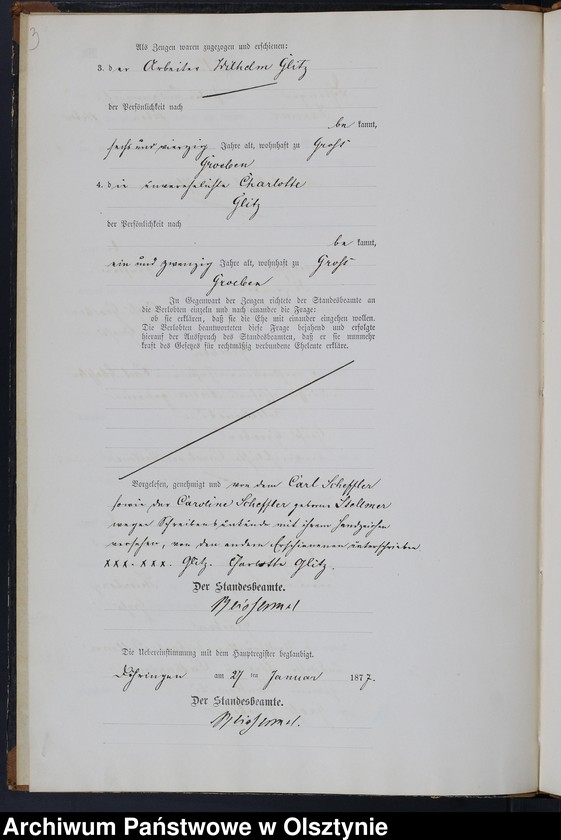 3
Als Zeugen waren zugezogen und erschienen:
3. der Arbeiter Wilhelm Glitz
der Persönlichkeit nach
be kannt,
sechs und vierzig Jahre alt, wohnhaft zu Groß
Groeben
4. die unverehelichte Charlotte
Glitz
der Persönlichkeit nach
be kannt,
ein und zwanzig Jahre alt, wohnhaft zu Groß
Groeben
In Gegenwart der Zeugen richtete der Standesbeamte an
die Verlobten einzeln und nach einander die Frage:
ob sie erklären, daß sie die Ehe mit einander eingehen wollen.
Die Verlobten beantworteten diese Frage bejahend und erfolgte
hierauf der Ausspruch des Standesbeamten, daß er sie nunmehr
kraft des Gesetzes für rechtmäßig verbundene Eheleute erkläre.
Vorgelesen, genehmigt und von dem Carl Scheffler
sowie der Caroline Scheffler geborne Stellmer
wegen Schreibensunkunde mit ihrem Handzeichen
versehen, von den andern Erschienenen unterschrieben
XXX. XXX. Glitz. Charlotte Glitz.
Der Standesbeamte.
Die Uebereinstimmung mit dem Hauptregister beglaubigt.
Döhringen am 27 ten Januar 1877.
Der Standesbeamte.
Archiwum Państwowe w Olsztynie